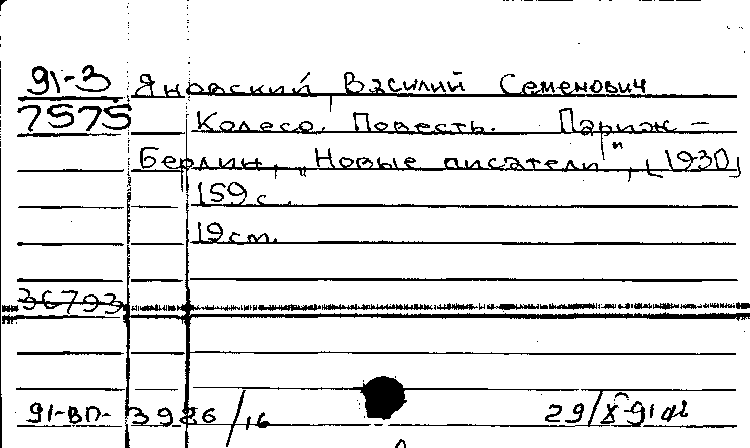 91-3 Яновский, Василий Семенович
7575 Колесо. Повесть. Париж –
Берлин, „Новые писатели", [1930]
159 с.
19 см.
36793
91-ВП- 3986/16 29/X-91